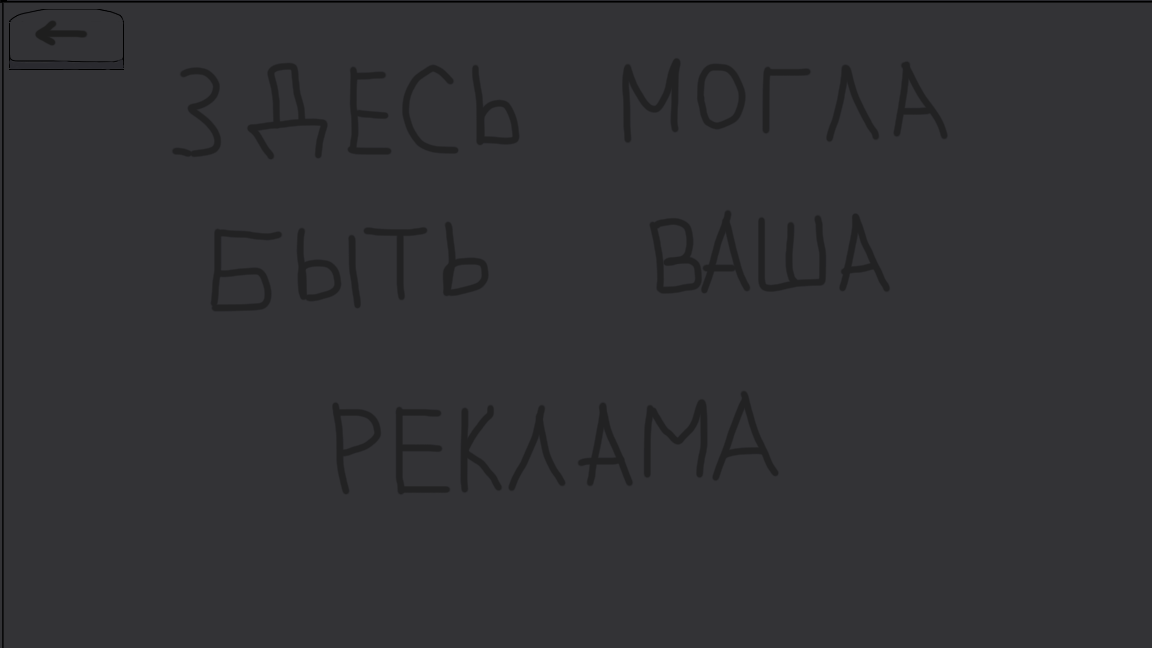 ЗДЕСЬ МОГЛА
БЫТЬ ВАША
РЕКЛАМА